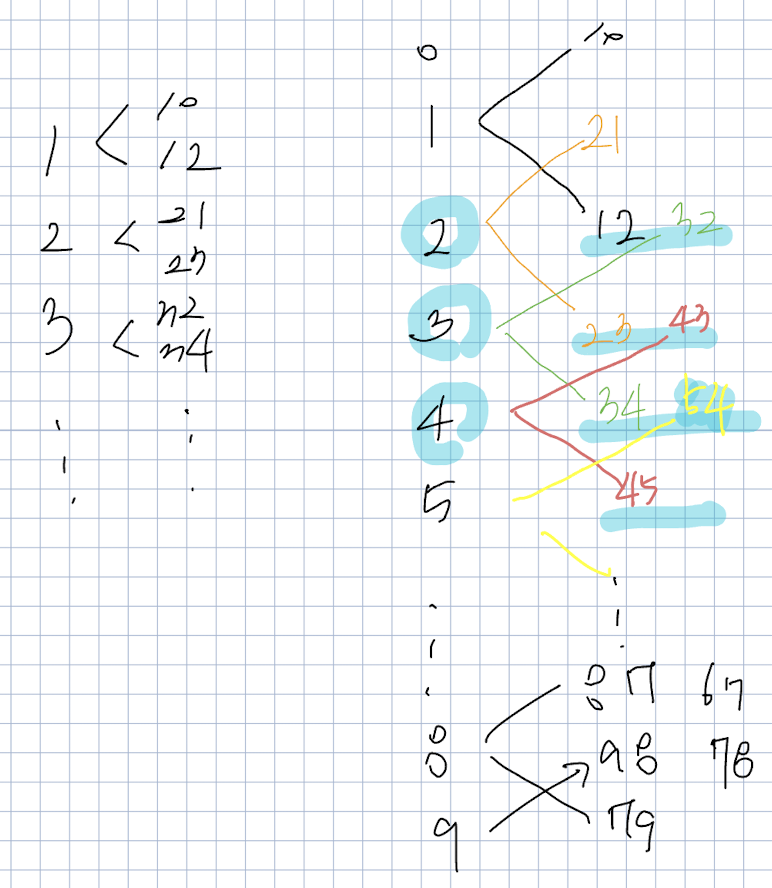 1 < 10
12
2 < 21
23
3 < 32
34
0
10
1
21
2
12 32
3
23 43
4
34 54
5
45
87 67
8
98 78
9
79